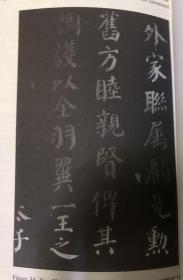 外家聯属顧先勳
舊方睦親賢俾其
調護以全羽翼一王之
太子